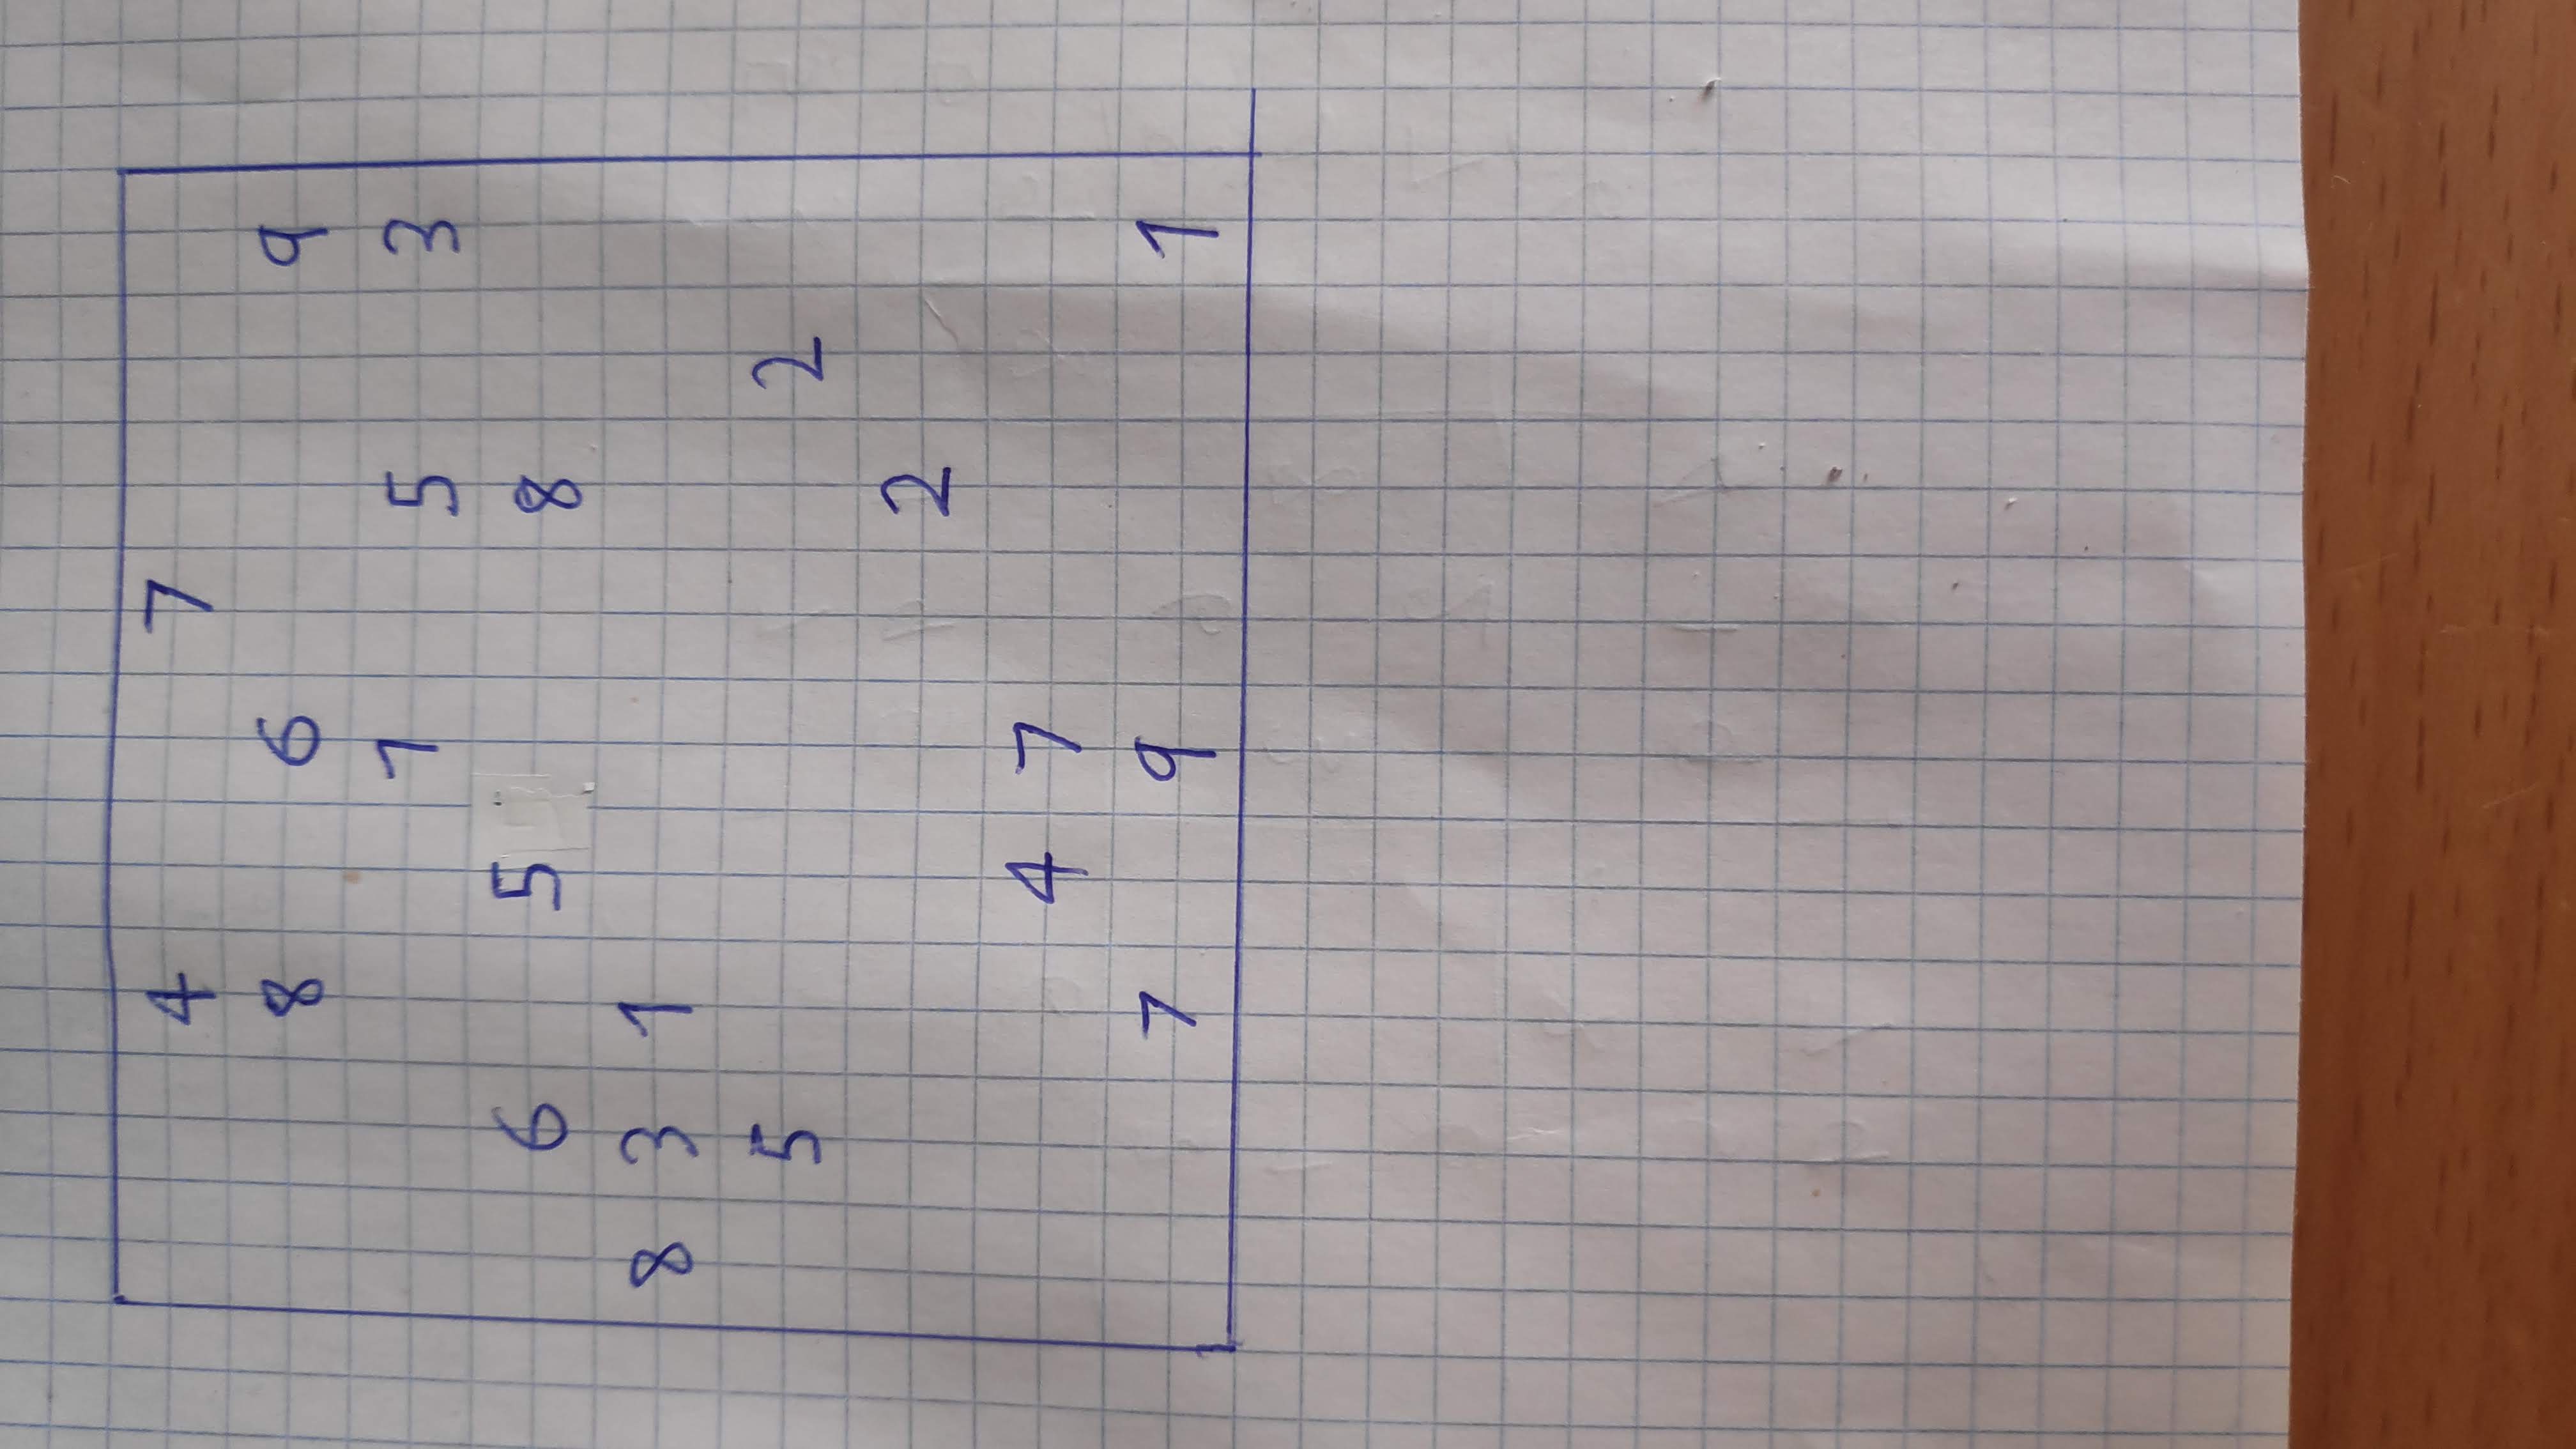 4 7
8 6 9
1 5 3
6 5 8
8 3 1
5 2
2
4 7
7 9 1